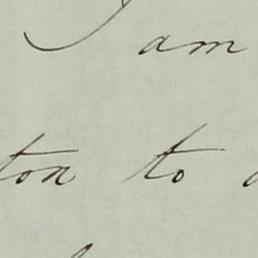 I am
ton to